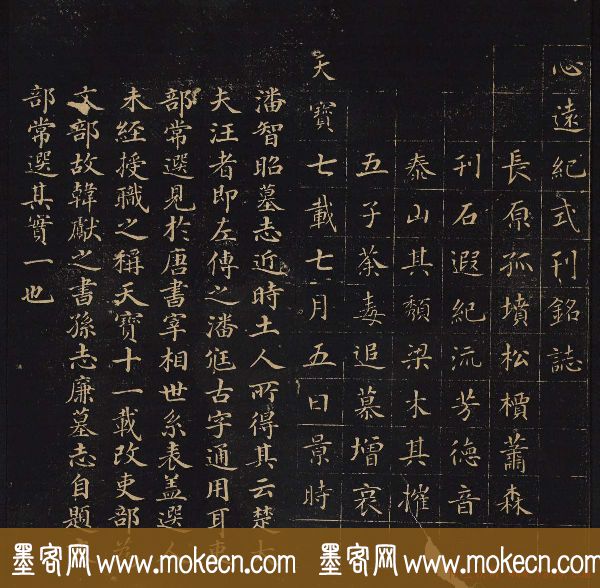 心遠紀式刊銘誌
長原孤墳松檟蕭森
刊石遐紀流芳德音
泰山其頹梁木其摧
五子荼毒追慕增哀
天寶七載七月五日景時
潘智昭墓志近時土人所得其云楚大
夫汪者即左傳之潘尫古字通用耳
部常選見於唐書宰相世系表盖選人
未經授職之稱天寶十一載改吏部
文部故韓獻之書孫志廉墓志自題
部常選其實一也
墨客网 www.mokecn.com 墨客网 www.mokecn.com